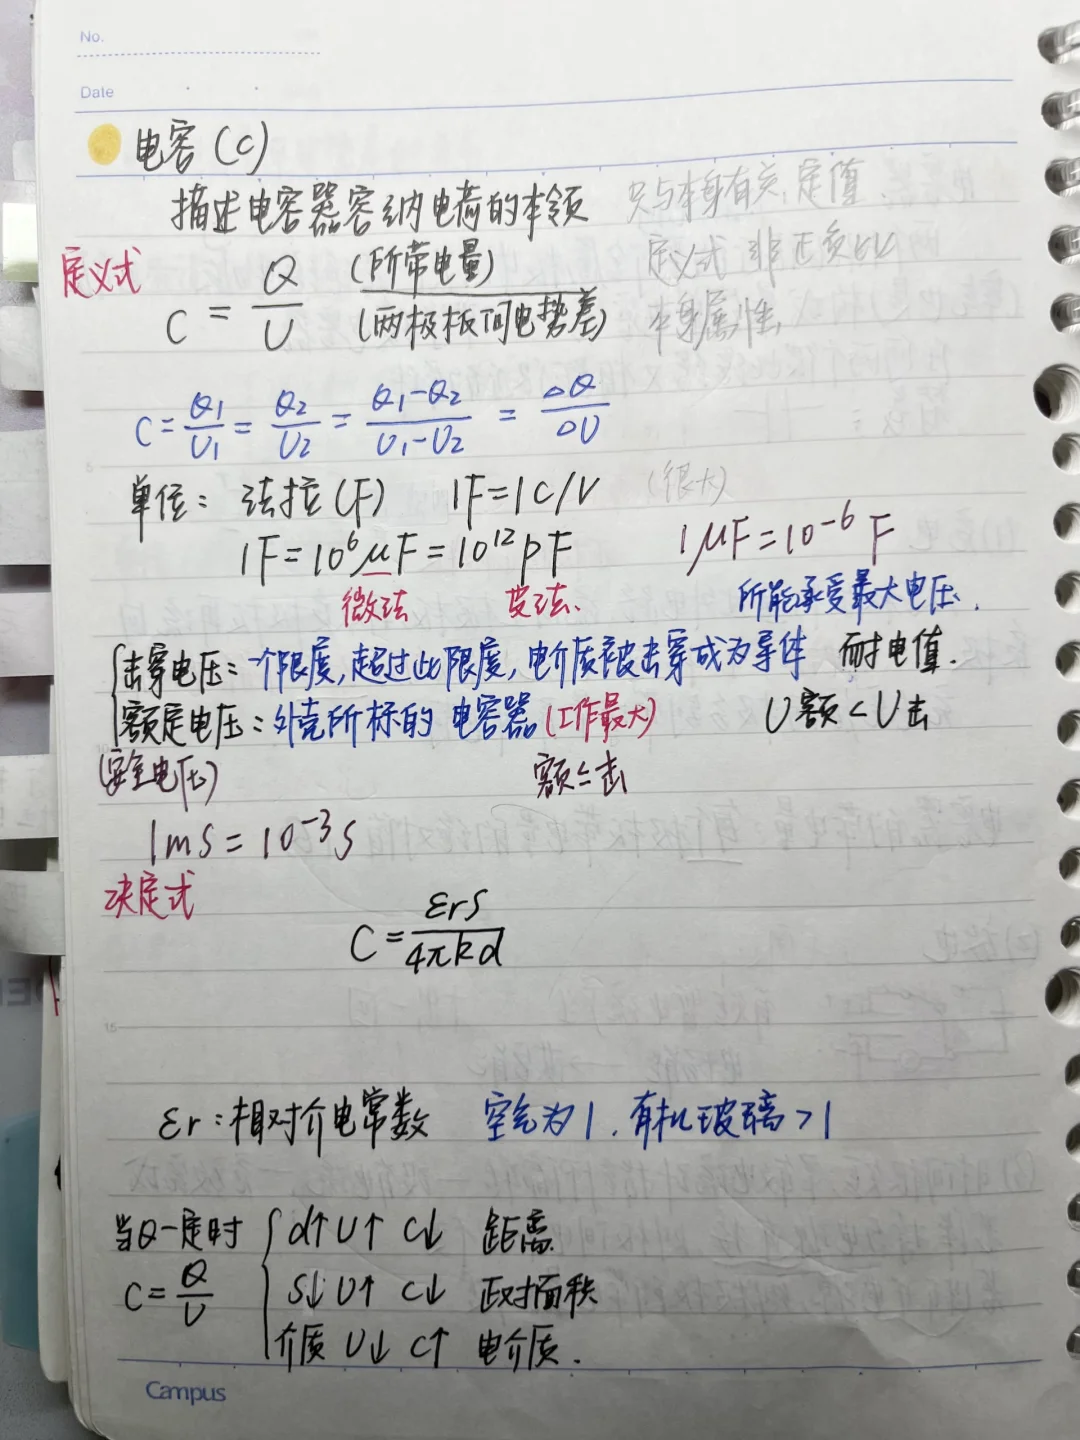 No.
Date
电容(C)
描述电容器容纳电荷的本领 只与本身有关,定值.
定义式 C = Q/U (所带电量)/(两极板间电势差) 定义式 非正负比
本身属性
C = Q₁/U₁ = Q₂/U₂ = Q₁-Q₂/U₁-U₂ = △Q/△U
单位: 法拉(F) 1F=1C/V (很大)
1F=10⁶μF=10¹²pF 1μF=10⁻⁶F
微法 皮法. 所能承受最大电压.
击穿电压:一个限度,超过此限度,电介质被击穿成为导体 耐电值.
额定电压:外壳所标的 电容器(工作最大) U额<U击
(安全电压) 额<击
1ms=10⁻³s
决定式
C = εrS/4πkd
5
15
εr:相对介电常数 空气为1.有机玻璃>1
当Q一定时 d↑U↑ C↓ 距离
C=Q/U S↓U↑ C↓ 正对面积
介质 U↓ C↑ 电介质.
Campus